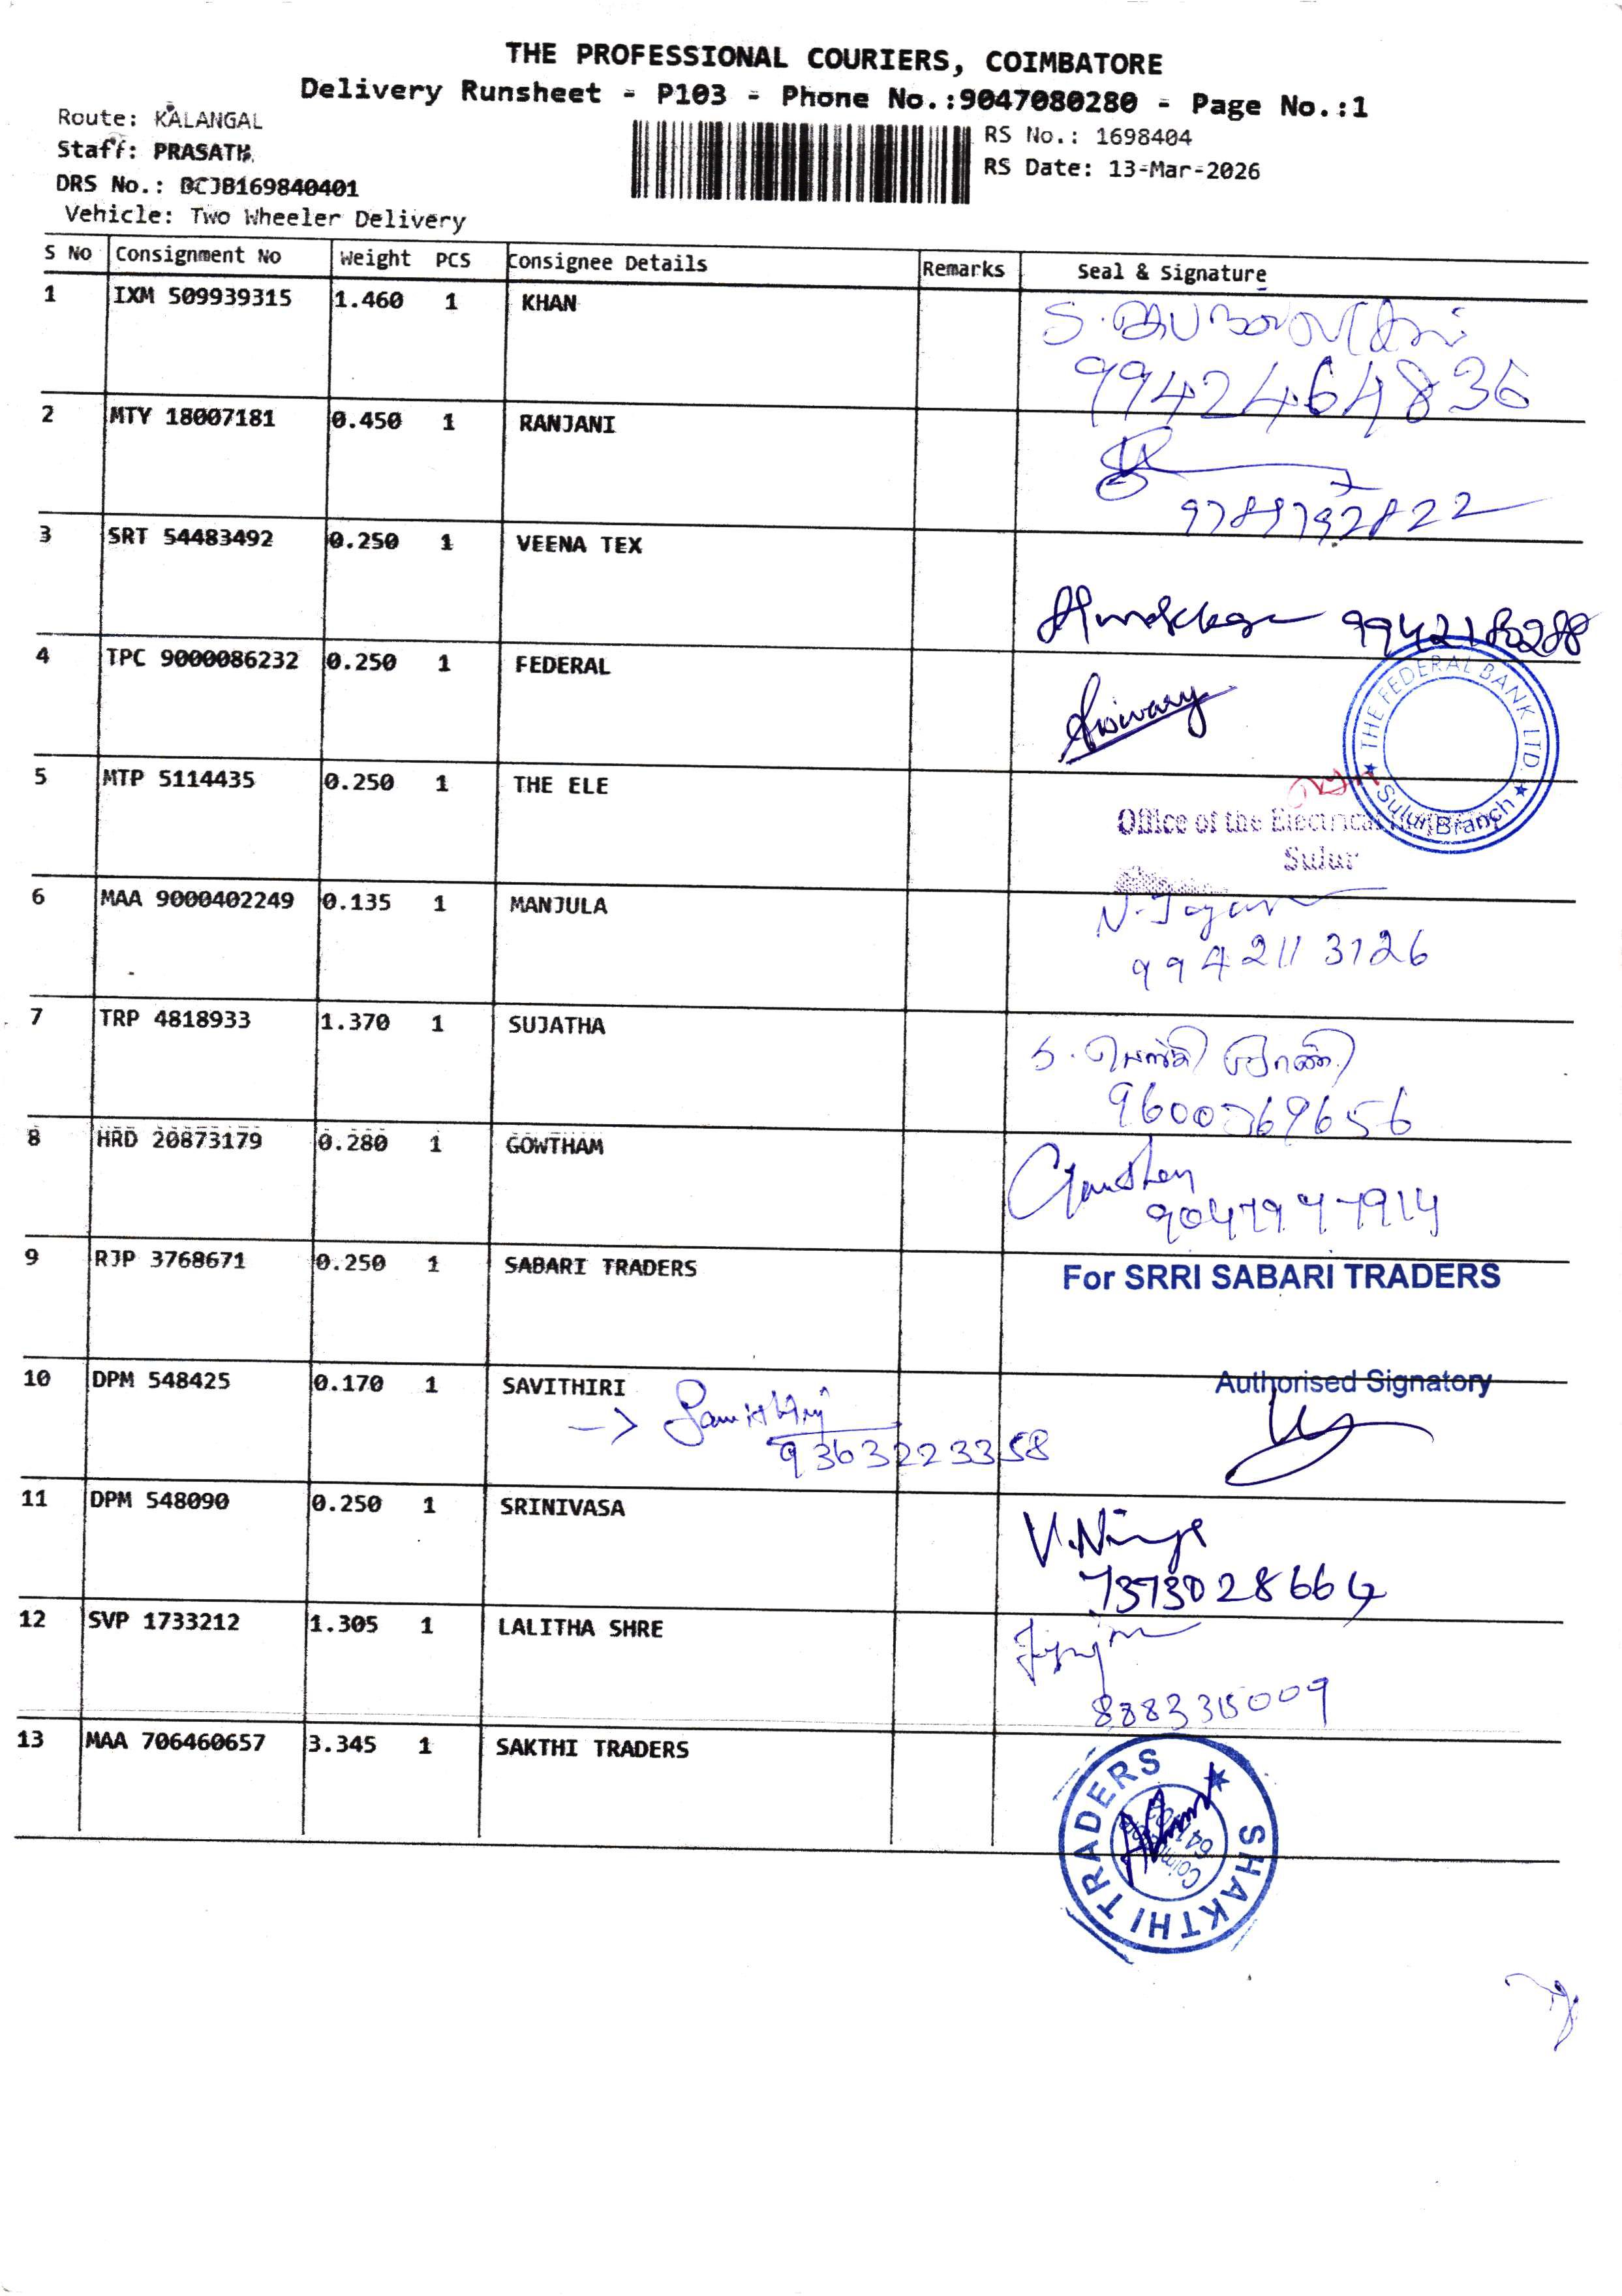 THE PROFESSIONAL COURIERS, COIMBATORE
Delivery Runsheet - P103 - Phone No.:9047080280 - Page No.:1
Route: KALANGAL
Staff: PRASATH
DRS No.: BCJB169840401
Vehicle: Two Wheeler Delivery
RS No.: 1698404
RS Date: 13-Mar-2026
S No Consignment No Weight PCS Consignee Details Remarks Seal & Signature
1 IXM 509939315 1.460 1 KHAN
9942464836
2 MTY 18007181 0.450 1 RANJANI
3 SRT 54483492 0.250 1 VEENA TEX
4 TPC 9000086232 0.250 1 FEDERAL
THE FEDERAL BANK LTD. ★ Sulur Branch ★
5 MTP 5114435 0.250 1 THE ELE
Office of the Electrical
Sulur
6 MAA 9000402249 0.135 1 MANJULA
9942113126
7 TRP 4818933 1.370 1 SUJATHA
8 HRD 20873179 0.280 1 GOWTHAM
9047947914
9 RJP 3768671 0.250 1 SABARI TRADERS
For SRRI SABARI TRADERS
Authorised Signatory
10 DPM 548425 0.170 1 SAVITHIRI
9363223358
11 DPM 548090 0.250 1 SRINIVASA
7373028664
12 SVP 1733212 1.305 1 LALITHA SHRE
13 MAA 706460657 3.345 1 SAKTHI TRADERS
SHAKTHI TRADERS ★